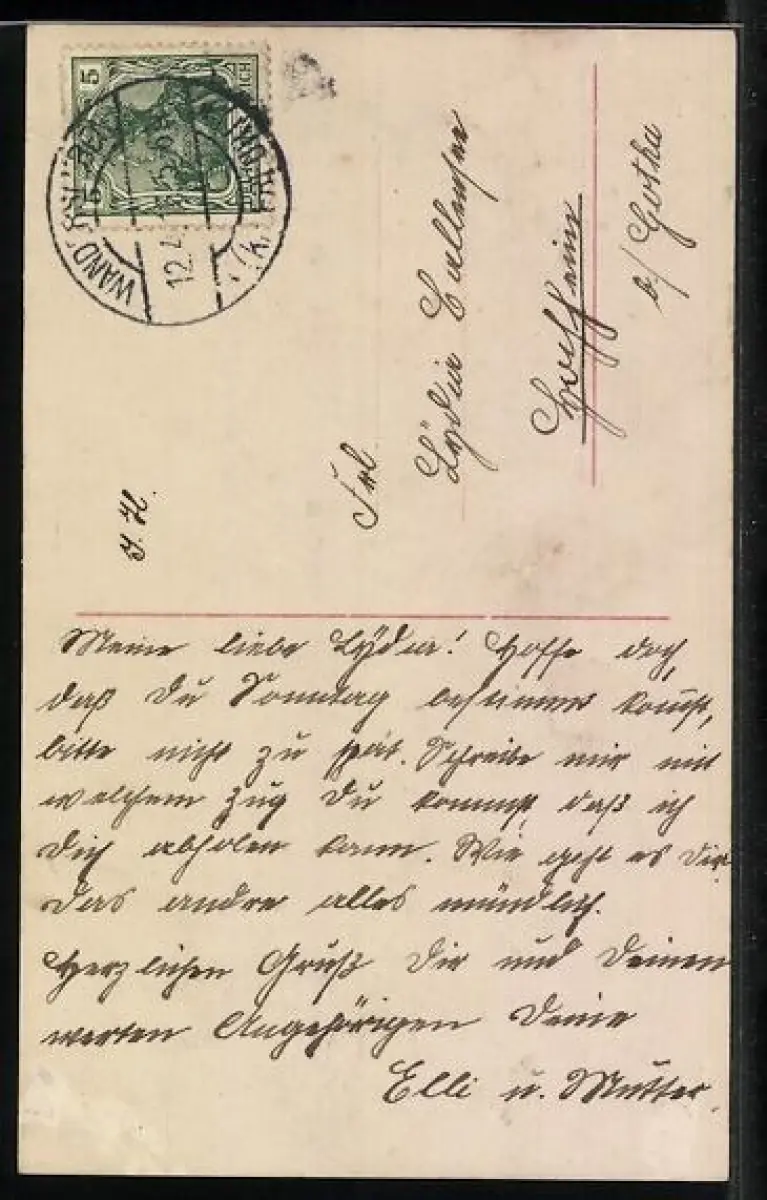 5
WANDERSLEBEN
12.4.
Frl.
Lydia
b/ Gotha
J. H.
Meine liebe Lydia! Hoffe doch,
daß Du Sonntag bestimmt kommst,
bitte nicht zu spät. Schreibe mir mit
welchem Zug Du kommst, daß ich
Dich abholen kann. Wie geht es Dir
das andre alles mündlich.
Herzlichen Gruß Dir und Deinen
werten Angehörigen Deine
Elli u. Mutter.